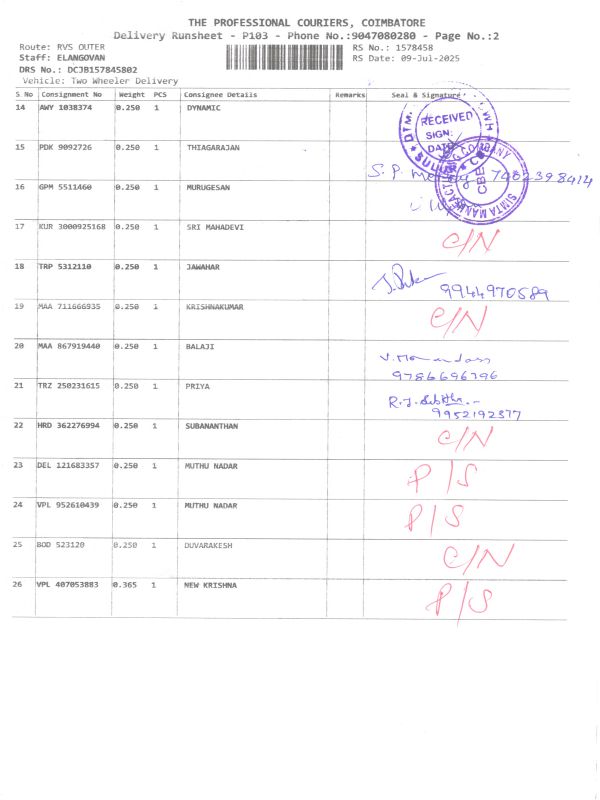 THE PROFESSIONAL COURIERS, COIMBATORE
Delivery Runsheet - P103 - Phone No.:9047080280 - Page No.:2
Route: RVS OUTER RS No.: 1578458
Staff: ELANGOVAN RS Date: 09-Jul-2025
DRS No.: DCJB157845802
Vehicle: Two Wheeler Delivery
S No Consignment No Weight PCS Consignee Details Remarks Seal & Signature
14 AWY 1038374 0.250 1 DYNAMIC
RECEIVED
SIGN:
DATE
15 PDK 9092726 0.250 1 THIAGARAJAN
S. P. 7402398414
16 GPM 5511460 0.250 1 MURUGESAN
17 KUR 3000925168 0.250 1 SRI MAHADEVI C/N
18 TRP 5312110 0.250 1 JAWAHAR
9944970589
19 MAA 711666935 0.250 1 KRISHNAKUMAR C/N
20 MAA 867919440 0.250 1 BALAJI
9786696796
21 TRZ 250231615 0.250 1 PRIYA
9952192377
22 HRD 362276994 0.250 1 SUBANANTHAN C/N
23 DEL 121683357 0.250 1 MUTHU NADAR P/S
24 VPL 952610439 0.250 1 MUTHU NADAR P/S
25 BOD 523120 0.250 1 DUVARAKESH C/N
26 VPL 407053883 0.365 1 NEW KRISHNA P/S